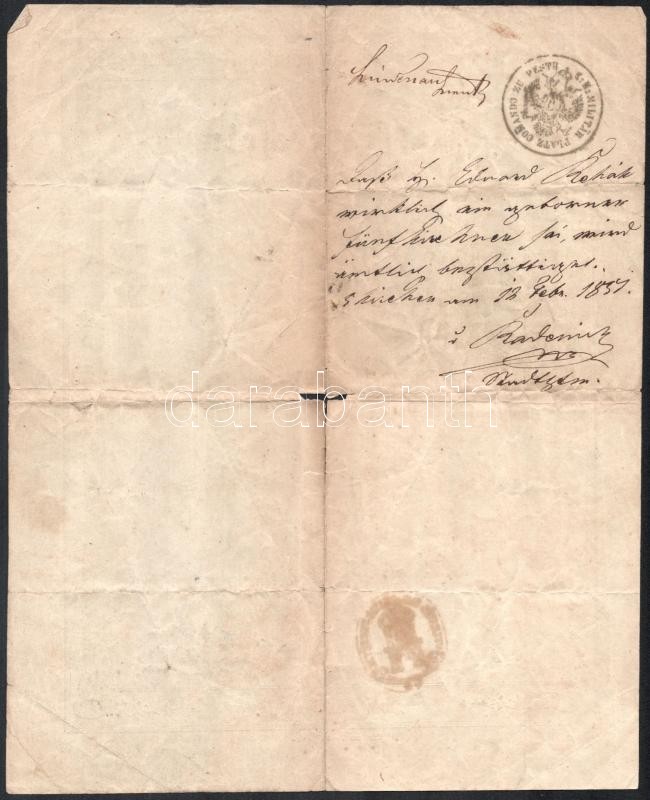 K: K: MILITÄR PLATZ COMANDO ZU PESTH
Daß H. Eduard
wirklich ein geborner
Fünfkirchner sei, wird
ämtlich bestättiget.
5kirchen am 12 Febr. 1851.
Stadthptm.
darabanth